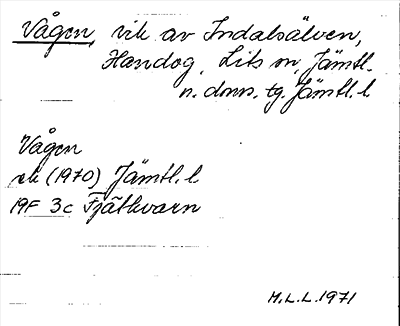 Vågen, vik av Indalsälven,
Handog, Lits sn, Jämtl.
n. doms. tg. Jämtl. l.
Vågen
ek (1970) Jämtl. l
19F 3c Fjäthvarn
M.L.L. 1971